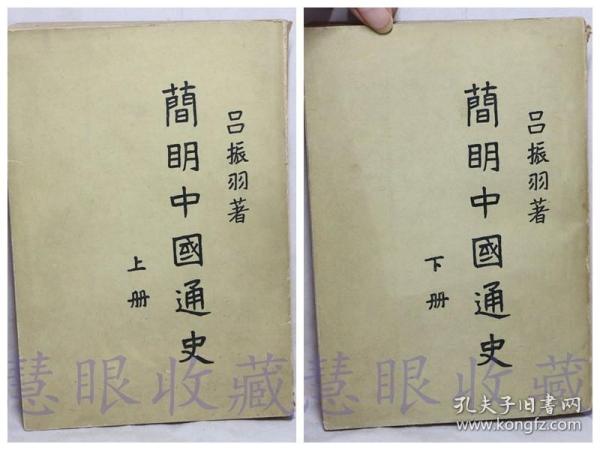 吕振羽著
簡明中國通史
上册
吕振羽著
簡明中國通史
下册
慧眼收藏
慧眼收藏
孔夫子旧书网
www.kongfz.com